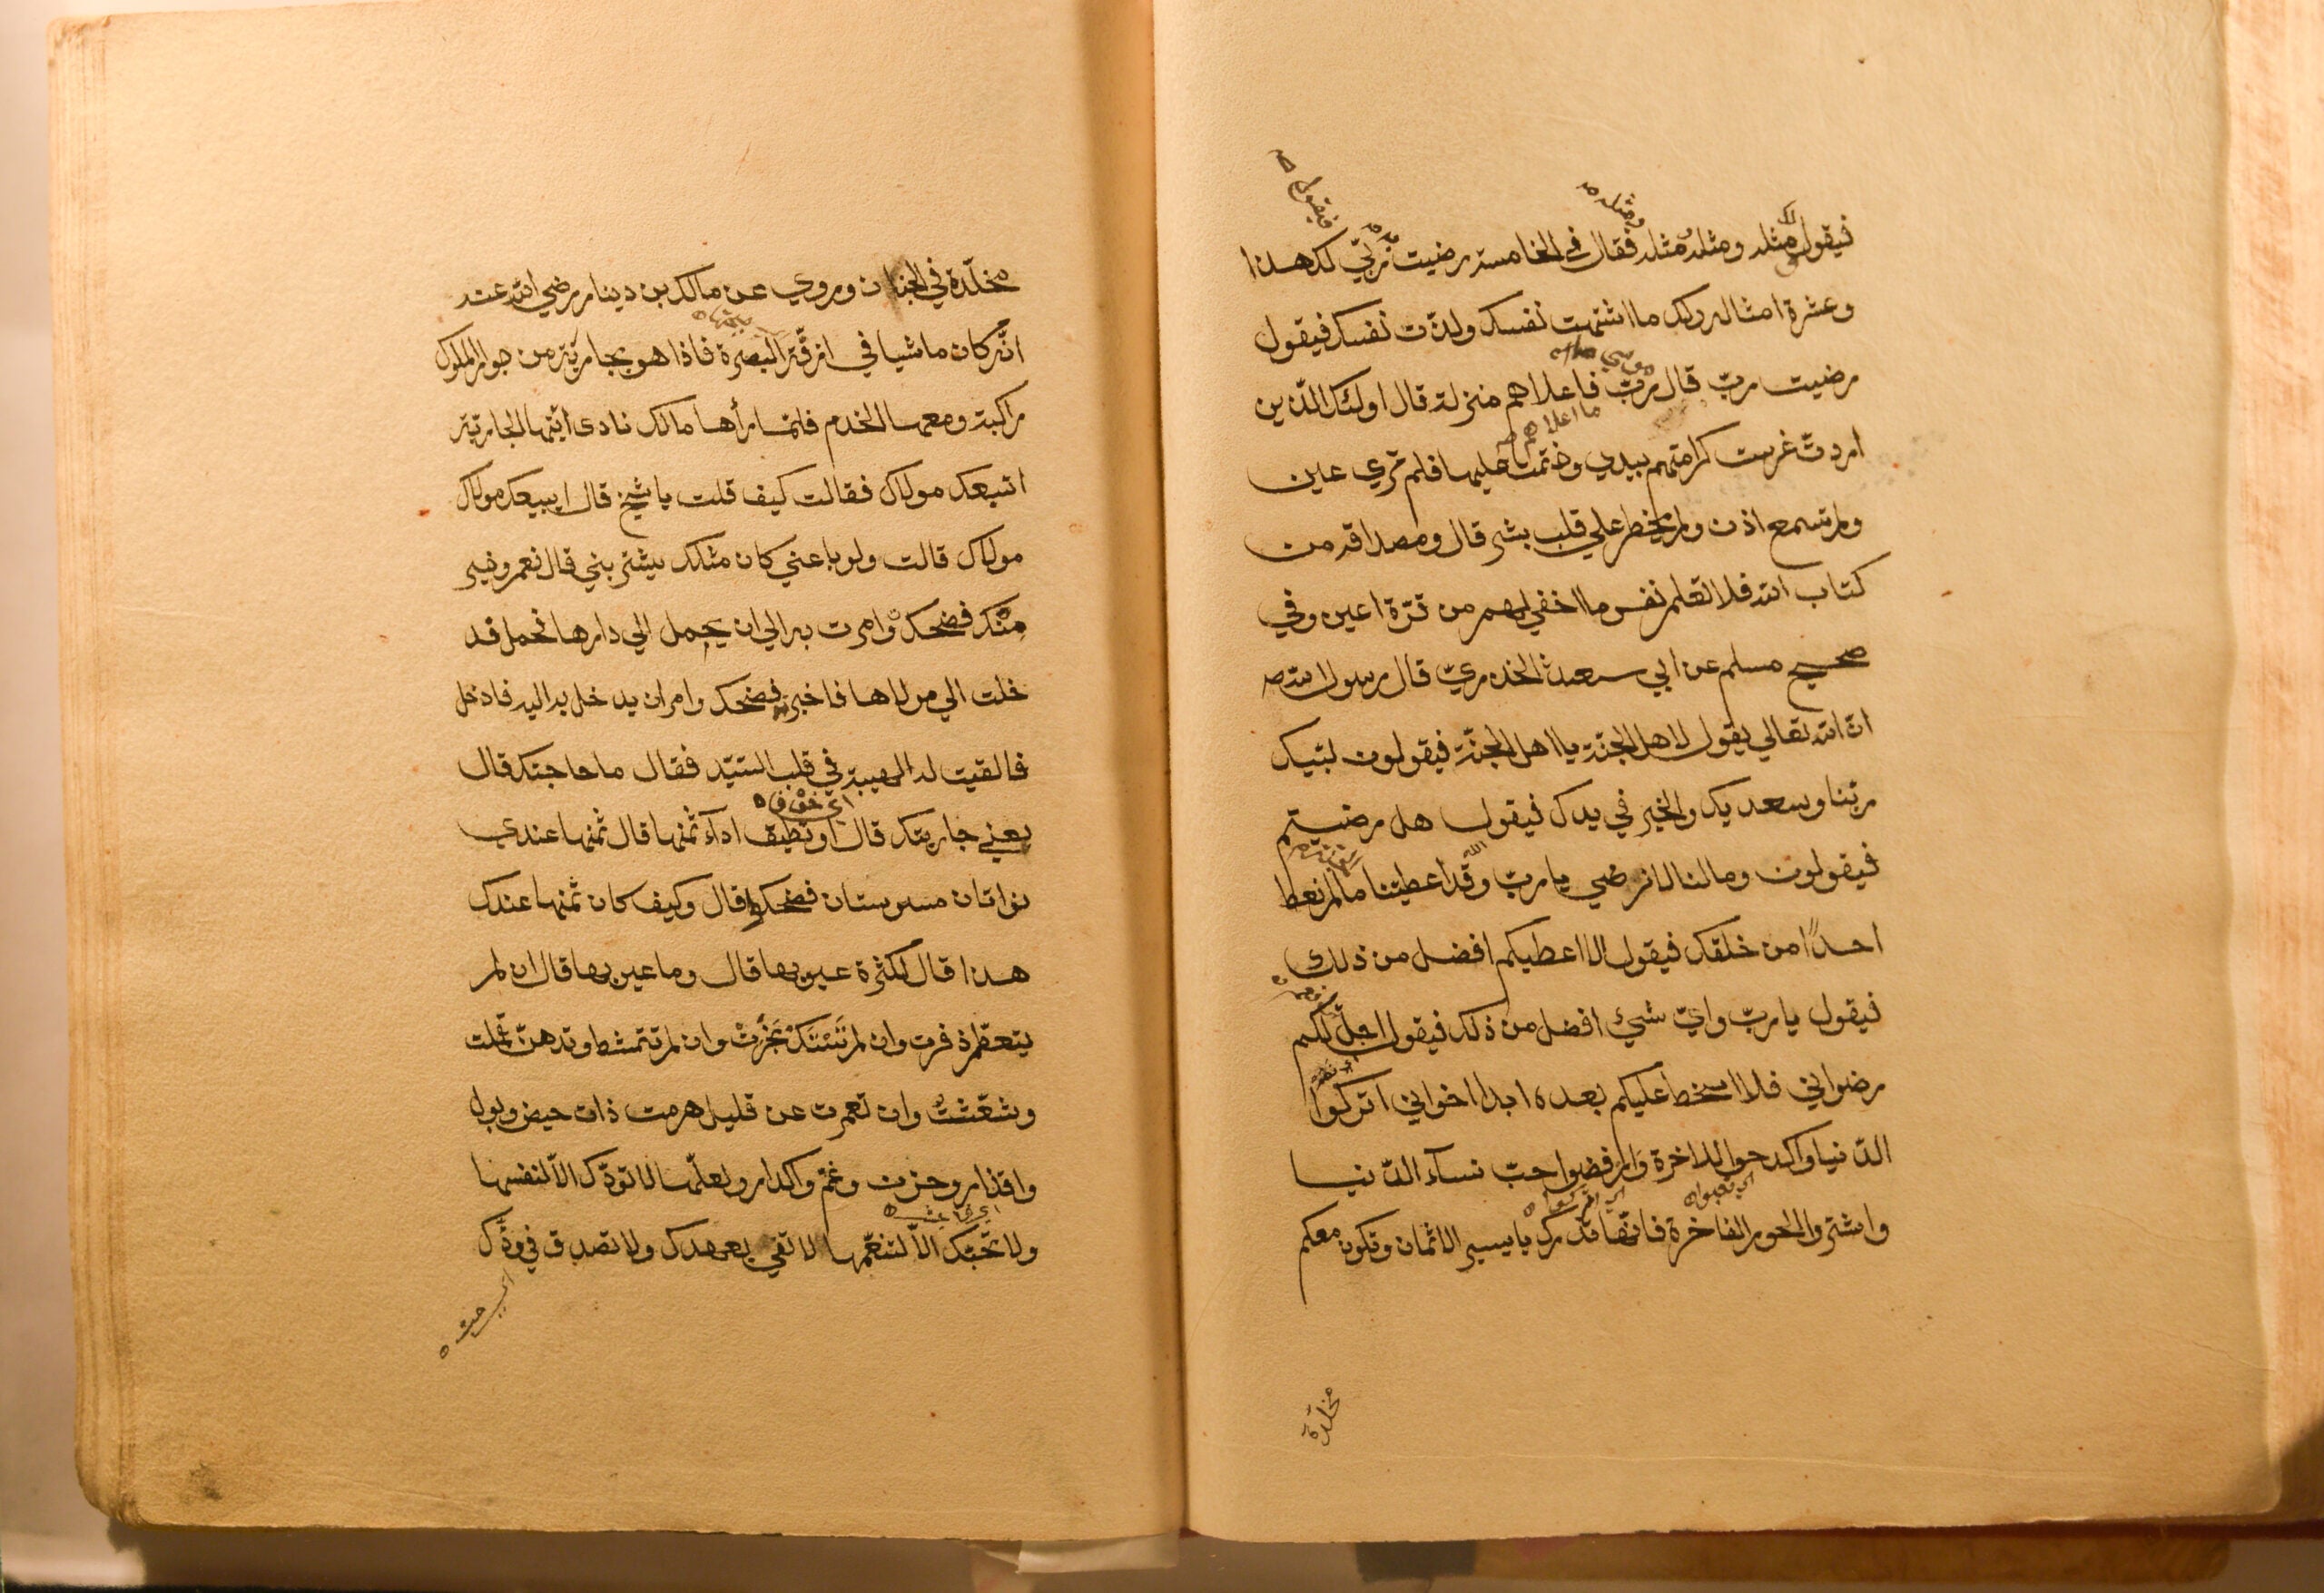 فيقول لك مثله ومثله ومثله فقال في الخامسة رضيت ربّي لك هذا
وعشرة امثاله ولك ما اشتهت نفسك ولذت نفسك فيقول
رضيت ربّ قال ربّ فاعلاهم منزلة قال اولئك الّذين
اردتّ غرست كرامتهم بيدي وختمت عليها فلم تري عين
ولم تسمع اذن ولم يخطر علي قلب بشر قال ومصداقه من
كتاب الله فلا تعلم نفس ما اخفي لهم من قرّة اعين وفي
صحيح مسلم عن ابي سعيد الخدريّ قال رسول الله ص
انّ الله تعالي يقول لاهل الجنّة يا اهل الجنّة فيقولون لبّيك
ربّنا وسعديك والخير في يدك فيقول هل رضيتم
فيقولون وما لنا لا نرضي يا ربّ وقد اعطيتنا ما لم نعط
احدًا من خلقك فيقول الا اعطيكم افضل من ذلك
فيقول يا ربّ وايّ شيئ افضل من ذلك فيقول احلّ لكم
رضواني فلا اسخط عليكم بعده ابدا اخواني اتركوا
الدّنيا واكدحوا للاخرة وارفضوا حبّ نسآء الدّنيا
واشتروا الحور الفاخرة فانّها تدرك بايسير الاثمان وتكون معكم
مخلّدة
مخلّدة في الجنان وروي عن مالك بن دينار رضي الله عنه
انّه كان ماشيا في ازقّة البصرة فاذا هو بجارية من جوار الملوك
راكبة ومعها الخدم فلمّا رأها مالك نادى ايّتها الجارية
اتبيعك مولاك فقالت كيف قلت يا شيخ قال ايبيعك مولاك
مولاك قالت ولو باعني كان مثلك يشتريني قال نعم وخير
منك فضحك وامرت به الي ان يحمل الي دارها فحمل فد
خلت الي مولاها فاخبرته فضحك وامر ان يدخل به اليه فادخل
فالقيت له الهيبة في قلب السّيّد فقال ما حاجتك قال
بعني جاريتك قال اوتطيق ادآء ثمنها قال ثمنها عندي
نواتان مسوستان فضحكوا قال وكيف كان ثمنها عندك
هذا قال لكثرة عيوبها قال وما عيوبها قال ان لم
يتعطر ذفرت وان لم تَسْتَكْ بَخُرَتْ وان لم تتمشط وتدهن قملت
وشعّثتْ وان تعمرت عن قليل هرمت ذات حيض وبول
واقذار وحزن وغمّ واكدار ولعلّها لا تودّك الّا لنفسها
ولا تحبّك الّا لتنعّمها لا تفي بعهدك ولا تصدق في ودّك